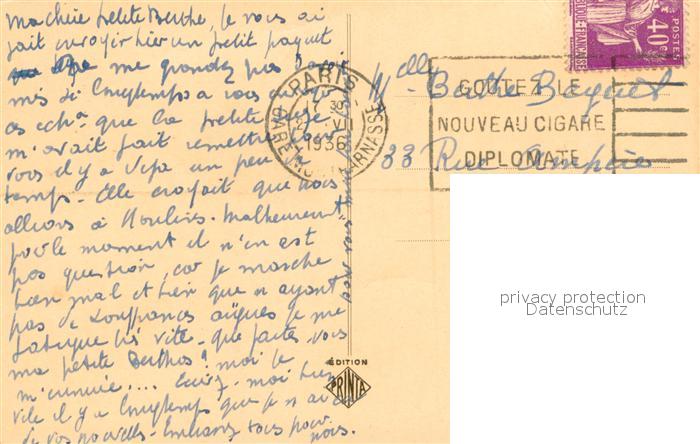 Ma chère petite Berthe, je vous ai
fait envoyer hier un petit paquet
ne me grondez pas d'avoir
mis si longtemps à vous
que la petite
m'avait fait remettre pour
vous il y a un peu de
temps - Elle croyait que nous
allions à Moulins. Malheureus^t
pour le moment il n'en est
pas question, car je marche
bien mal et bien que n'ayant
pas de souffrances aigües je me
fatigue très vite - que faites-vous
ma petite Berthe? moi je
m'ennuie.... Ecrivez-moi bien
vite il y a longtemps que je n'ai eu
de vos nouvelles - Embrassez tous pour
nous.
pour vous
M^elle Berthe
33 Rue
PARIS
1936
GARE MONTPARNASSE
GOUTEZ LE
NOUVEAU CIGARE
DIPLOMATE
POSTES
40c
ÉDITION
PRINTA
privacy protection
Datenschutz